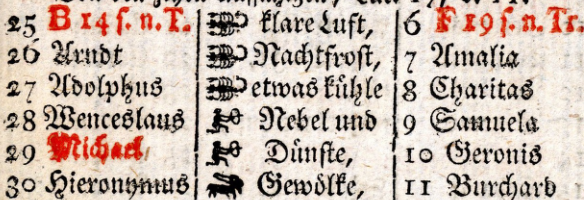 25 B 14 s. n. T. klare Luft, 6 F 19 s. n. Tr.
26 Arndt Nachtfrost, 7 Amalia
27 Adolphus etwas kühle 8 Charitas
28 Wenceslaus Nebel und 9 Samuela
29 Michael Dünste, 10 Geronis
30 Hieronymus Gewölke, 11 Burchard